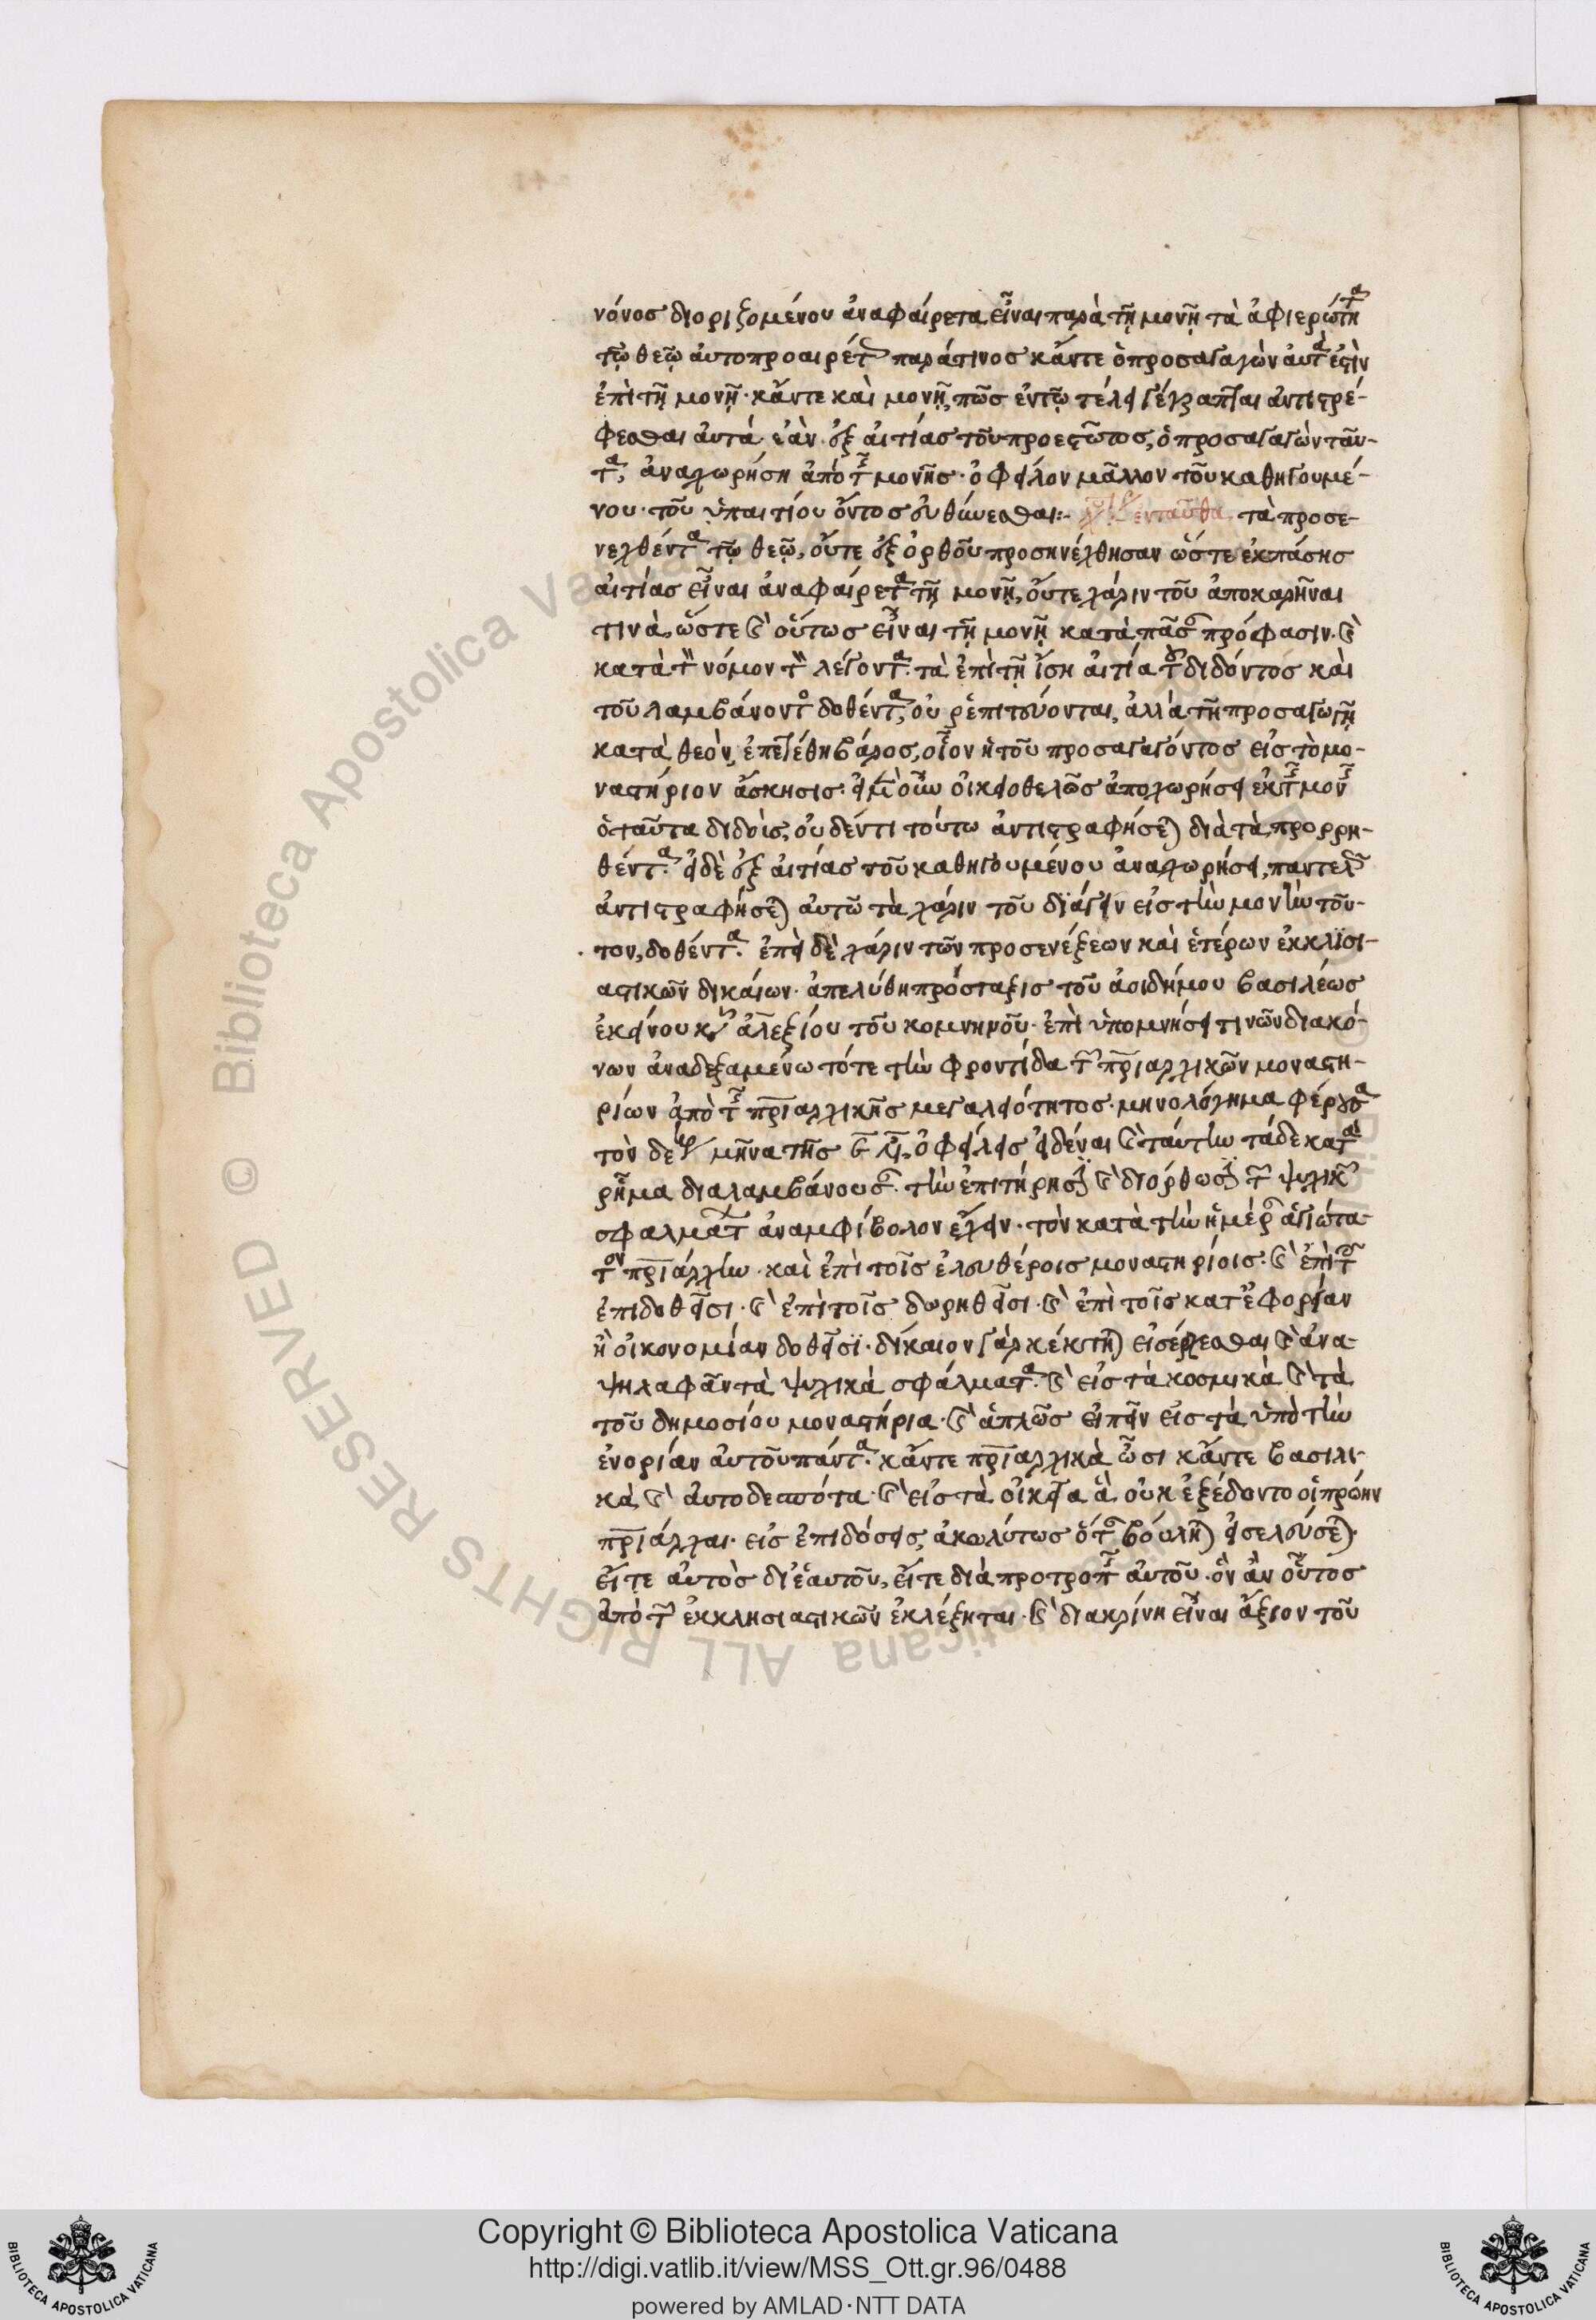 νόνος διοριζομένου ἀναφαίρετα εἶναι παρὰ τῇ μονῇ τὰ ἀφιερώτη
τῷ θεῷ αὐτοπροαιρέτ παράτινος κἄντε ὁ προσαγαγὼν αὐτὰ ἐστὶν
ἐπὶ τῇ μονῇ· κἄντε καὶ μονῇ, πῶς ἐν τῷ τέλει ἀντιστρέ-
φεσθαι αὐτά· ἐὰν ἐξ αἰτίας τοῦ προεστῶτος, ὁ προσαγαγὼν ταῦ-
τα, ἀναχωρήση ἀπὸ τῆς μονῆς· ὀφεῖλον μᾶλλον τοῦ καθηγουμέ-
νου· τοῦ ὑπαιτίου ὄντος εὐθύνεσθαι:- ἐνταῦθα, τὰ προσε-
νεχθέντα τῷ θεῷ, οὔτε ἐξ ὀρθοῦ προσηνέχθησαν ὥστε ἐκπάσης
αἰτίας εἶναι ἀναφαίρετα τῇ μονῇ, οὔτε χάριν τοῦ ἀποκαρῆναι
τινὰ, ὥστε καὶ οὕτως εἶναι τῇ μονῇ κατὰ πᾶσαν πρόφασιν. καὶ
κατὰ τὸν νόμον τὸν λέγοντα· τὰ ἐπὶ τῇ ἴση αἰτία τοῦ διδόντος καὶ
τοῦ λαμβάνοντος δοθέντα, οὐ ῥεπιτεύονται, ἀλλὰ τῇ προσαγωγῇ
κατὰ θεὸν, ἐπετέθη βάρος, οἷον ἡ τοῦ προσαγαγόντος εἰς τὸ μο-
ναστήριον ἄσκησις· εἰ μὲν οὖν οἰκειοθελῶς ἀποχωρήσει ἐκ τῆς μονῆς
ὁ ταῦτα διδοὺς, οὐδέν τι τούτω ἀντιστραφήσεται διὰ τὰ προρρη-
θέντα. εἰ δὲ ἐξ αἰτίας τοῦ καθηγουμένου ἀναχωρήσει, παντελῶς
ἀντιστραφήσεται αὐτῶ τὰ χάριν τοῦ διάγειν εἰς τὴν μονὴν τοῦ-
τον, δοθέντα. ἐπεὶ δὲ χάριν τῶν προσενέξεων καὶ ἑτέρων ἐκκλησι-
αστικῶν δικαίων· ἀπελύθη πρόσταξις τοῦ ἀοιδήμου βασιλέως
ἐκείνου κυροῦ ἀλεξίου τοῦ κομνηνοῦ· ἐπὶ ὑπομνήσει τινῶν διακό-
νων ἀναδεξαμένω τότε τὴν φροντίδα τῶν πριαρχικῶν μοναστη-
ρίων ἀπὸ τῆς πριαρχικῆς μεγαλειότητος· μηνολόγημα φέρουσα
τὸν δεκ μῆνα τῆς ὀφείλεις εἰδέναι καὶ ταύτην τάδε κατὰ
ρῆμα διαλαμβάνουσαν· τὴν ἐπιτήρησιν καὶ διόρθωσιν τῶν ψυχικῶν
σφαλμάτων ἀναμφίβολον ἔχειν· τὸν κατὰ τὴν ἡμέραν ἁγιώτα-
τον πριάρχην· καὶ ἐπὶ τοῖς ἐλευθέροις μοναστηρίοις· καὶ ἐπὶ τοῖς
ἐπιδοθεῖσι· καὶ ἐπὶ τοῖς δωρηθεῖσι· καὶ ἐπὶ τοῖς κατ' ἐφορείαν
ἢ οἰκονομίαν δοθεῖσι· δίκαιον γὰρ κέκτηται εἰσέρχεσθαι καὶ ἀνα-
ψηλαφᾶν τὰ ψυχικὰ σφάλματα. καὶ εἰς τὰ κοσμικὰ καὶ τὰ
τοῦ δημοσίου μοναστήρια· καὶ ἁπλῶς εἰπεῖν εἰς τὰ ὑπὸ τὴν
ἐνορίαν αὐτοῦ πάντα. κἄντε πριαρχικὰ ὦσι κἄντε βασιλι-
κὰ καὶ αὐτοδεσπότα· καὶ εἰς τὰ οἰκεῖα ἃ οὐκ ἐξέδοντο οἱ πρώην
πριάρχαι· εἰς ἐπιδόσεις, ἀκωλύτως ὅταν βούληται εἰσελεύσεται.
εἴτε αὐτὸς δι' ἑαυτοῦ, εἴτε διὰ προτροπῆς αὐτοῦ· ὃν ἂν οὗτος
ἀπὸ τῶν ἐκκλησιαστικῶν ἐκλέξηται· καὶ διακρίνη εἶναι ἄξιον τοῦ
Copyright © Biblioteca Apostolica Vaticana
http://digi.vatlib.it/view/MSS_Ott.gr.96/0488
powered by AMLAD·NTT DATA
BIBLIOTECA APOSTOLICA VATICANA
BIBLIOTECA APOSTOLICA VATICANA
© Biblioteca Apostolica Vaticana ALL RIGHTS RESERVED